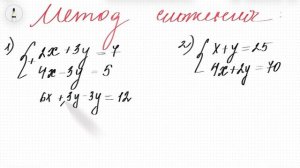 Метод сложений:
1) { 2x + 3y = 7
+ 4x - 3y = 5
6x + 3y - 3y = 12
2) { x + y = 25
4x + 2y = 70